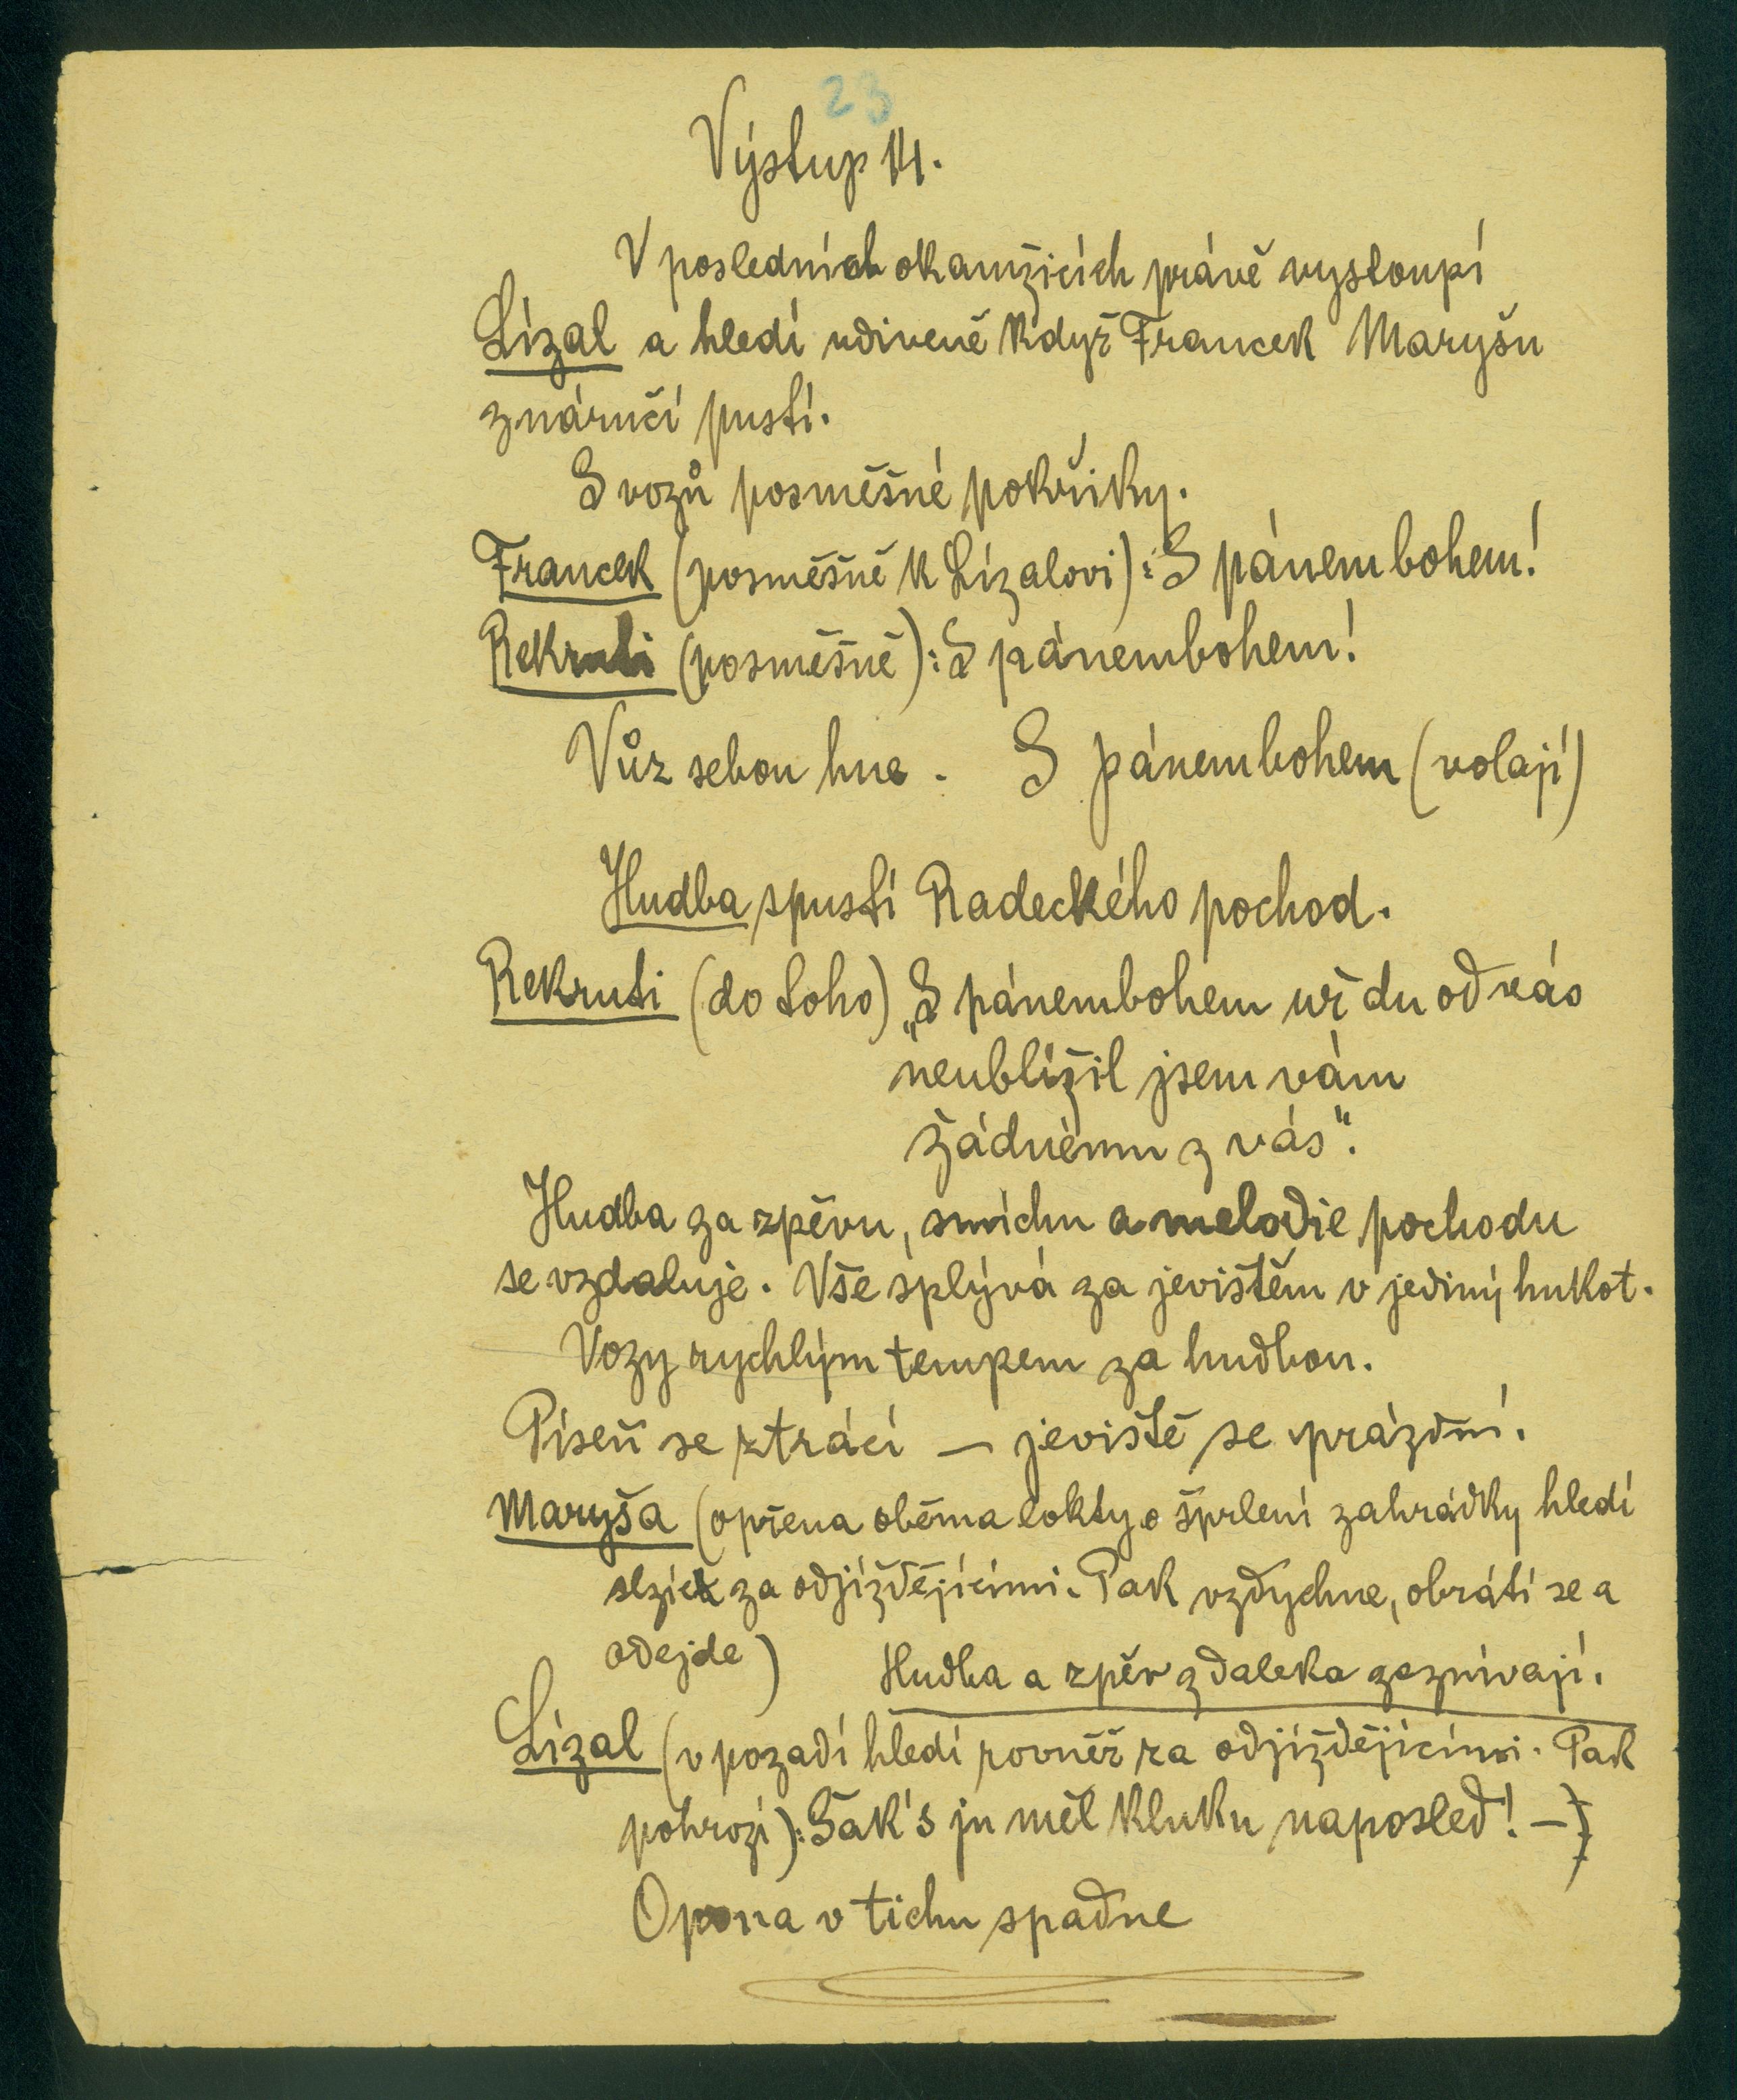 23
Výstup 14.
V posledních okamžicích právě vystoupí
Lízal a hledí udiveně když Francek Maryšu
z náručí pustí.
S vozů posměšné pokřiky.
Francek (posměšně k Lízalovi): S pánembohem!
Rekruti (posměšně): S pánembohem!
Vůz sebou hne. S pánembohem (volají)
Hudba spustí Radeckého pochod.
Rekruti (do toho) „S pánembohem už du od vás
neublížil jsem vám
žádnému z vás".
Hudba za zpěvu, smíchu a melodie pochodu
se vzdaluje. Vše splývá za jevištěm v jediný hukot.
Vozy rychlým tempem za hudbou.
Píseň se ztrácí — jeviště se prázdní.
Maryša (opřena oběma lokty o šprlení zahrádky hledí
slzíc za odjíždějícími. Pak vzdychne, obrátí se a
odejde) Hudba a zpěv z daleka zaznívají.
Lízal (v pozadí hledí rovněž za odjíždějícími. Pak
pohrozí): Šak's ju měl kluku naposled! —)
Opona v tichu spadne